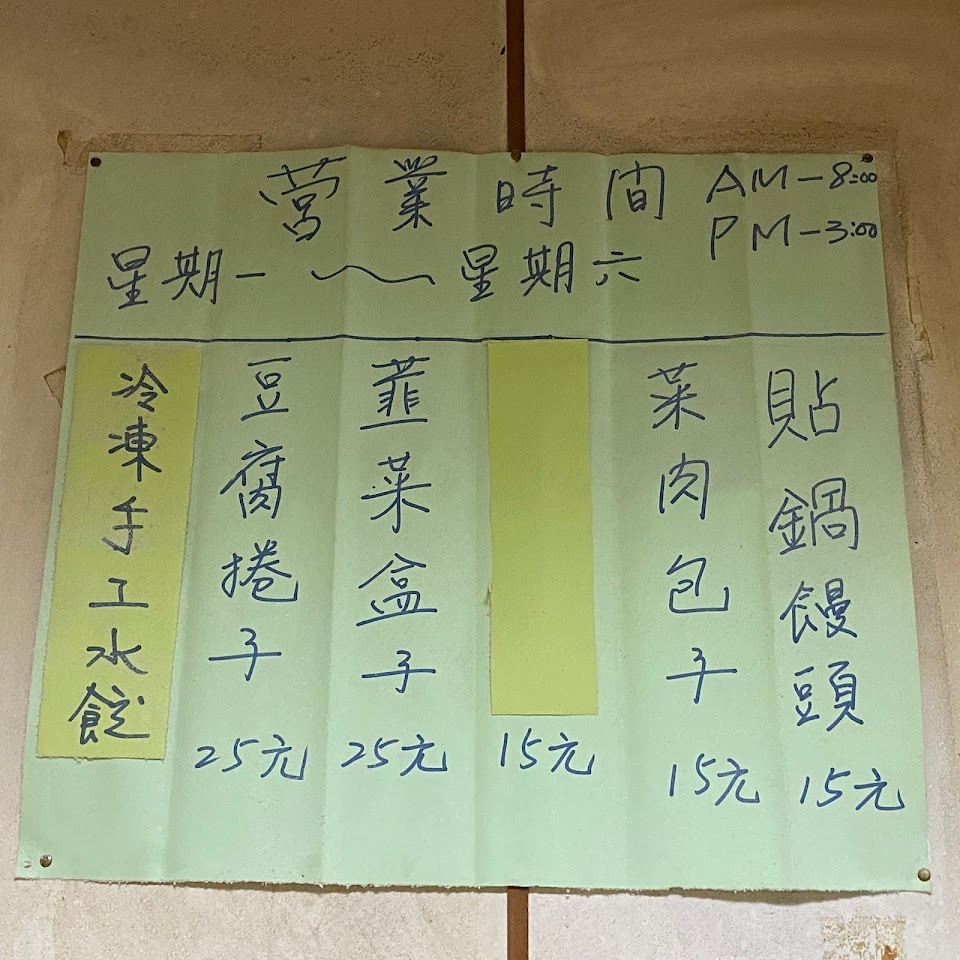 營業時間 AM-8:00
PM-3:00
星期一～星期六
貼鍋饅頭 15元
菜肉包子 15元
15元
韮菜盒子 25元
豆腐捲子 25元
冷凍手工水餃